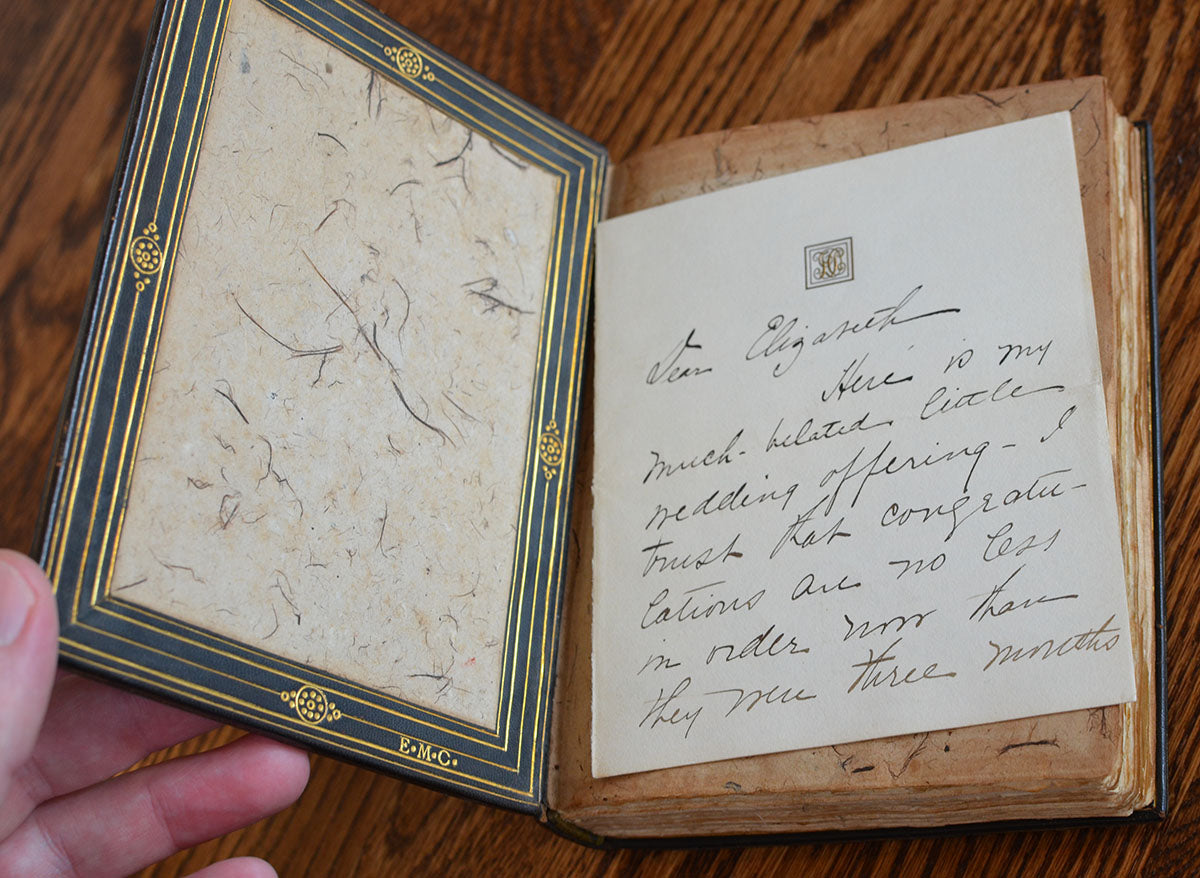 E·M·C·
Dear Elizabeth
Here is my
much-belated little
wedding offering - I
trust that congratu-
lations are no less
in order now than
they were three months